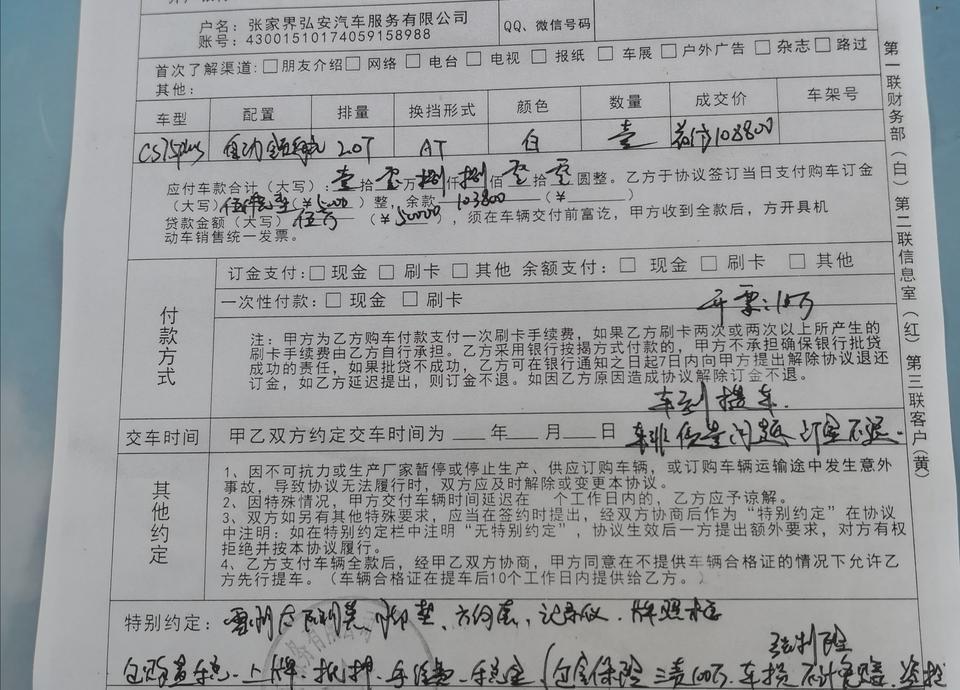 户名：张家界弘安汽车服务有限公司
账号：43001510174059158988
QQ、微信号码
首次了解渠道：□朋友介绍□网络 □电台 □电视 □报纸 □车展 □户外广告 □杂志□路过
其他：
车型 配置 排量 换挡形式 颜色 数量 成交价 车架号
CS75plus 自动 2.0T AT 白 壹 108800
应付车款合计（大写）：壹拾零万捌仟捌佰零拾零圆整。乙方于协议签订当日支付购车订金
（大写）伍仟元（￥5000）整，余款 103800 （￥ ）
贷款金额（大写）伍万（￥50000），须在车辆交付前富讫，甲方收到全款后，方开具机
动车销售统一发票。
付款方式
订金支付：□现金 □刷卡 □其他 余额支付：□ 现金 □刷卡 □ 其他
一次性付款：□现金 □刷卡
开票：10万
注：甲方为乙方购车付款支付一次刷卡手续费，如果乙方刷卡两次或两次以上所产生的
刷卡手续费由乙方自行承担。乙方采用银行按揭方式付款的，甲方不承担确保银行批贷
成功的责任，如果批贷不成功，乙方可在银行通知之日起7日内向甲方提出解除协议退还
订金，如乙方延迟提出，则订金不退。如因乙方原因造成协议解除订金不退。
车到提车.
交车时间
甲乙双方约定交车时间为 年 月 日
车非质量问题 订金不退.
其他约定
1、因不可抗力或生产厂家暂停或停止生产、供应订购车辆，或订购车辆运输途中发生意外
事故，导致协议无法履行时，双方应及时解除或变更本协议。
2、因特殊情况，甲方交付车辆时间延迟在 个工作日内的，乙方应予谅解。
3、双方如另有其他特殊要求，应当在签约时提出，经双方协商后作为“特别约定”在协议
中注明：如在特别约定栏中注明“无特别约定”，协议生效后一方提出额外要求，对方有权
拒绝并按本协议履行。
4、乙方支付车辆全款后，经甲乙双方协商，甲方同意在不提供车辆合格证的情况下允许乙
方先行提车。（车辆合格证在提车后10个工作日内提供给乙方。）
特别约定： 脚垫、方向盘套，记录仪，牌照框
强制险
上牌、抵押、手续费 （包含保险 三责100万、车损 不计免赔、盗抢
第一联财务部（白）第二联信息室（红）第三联客户（黄）